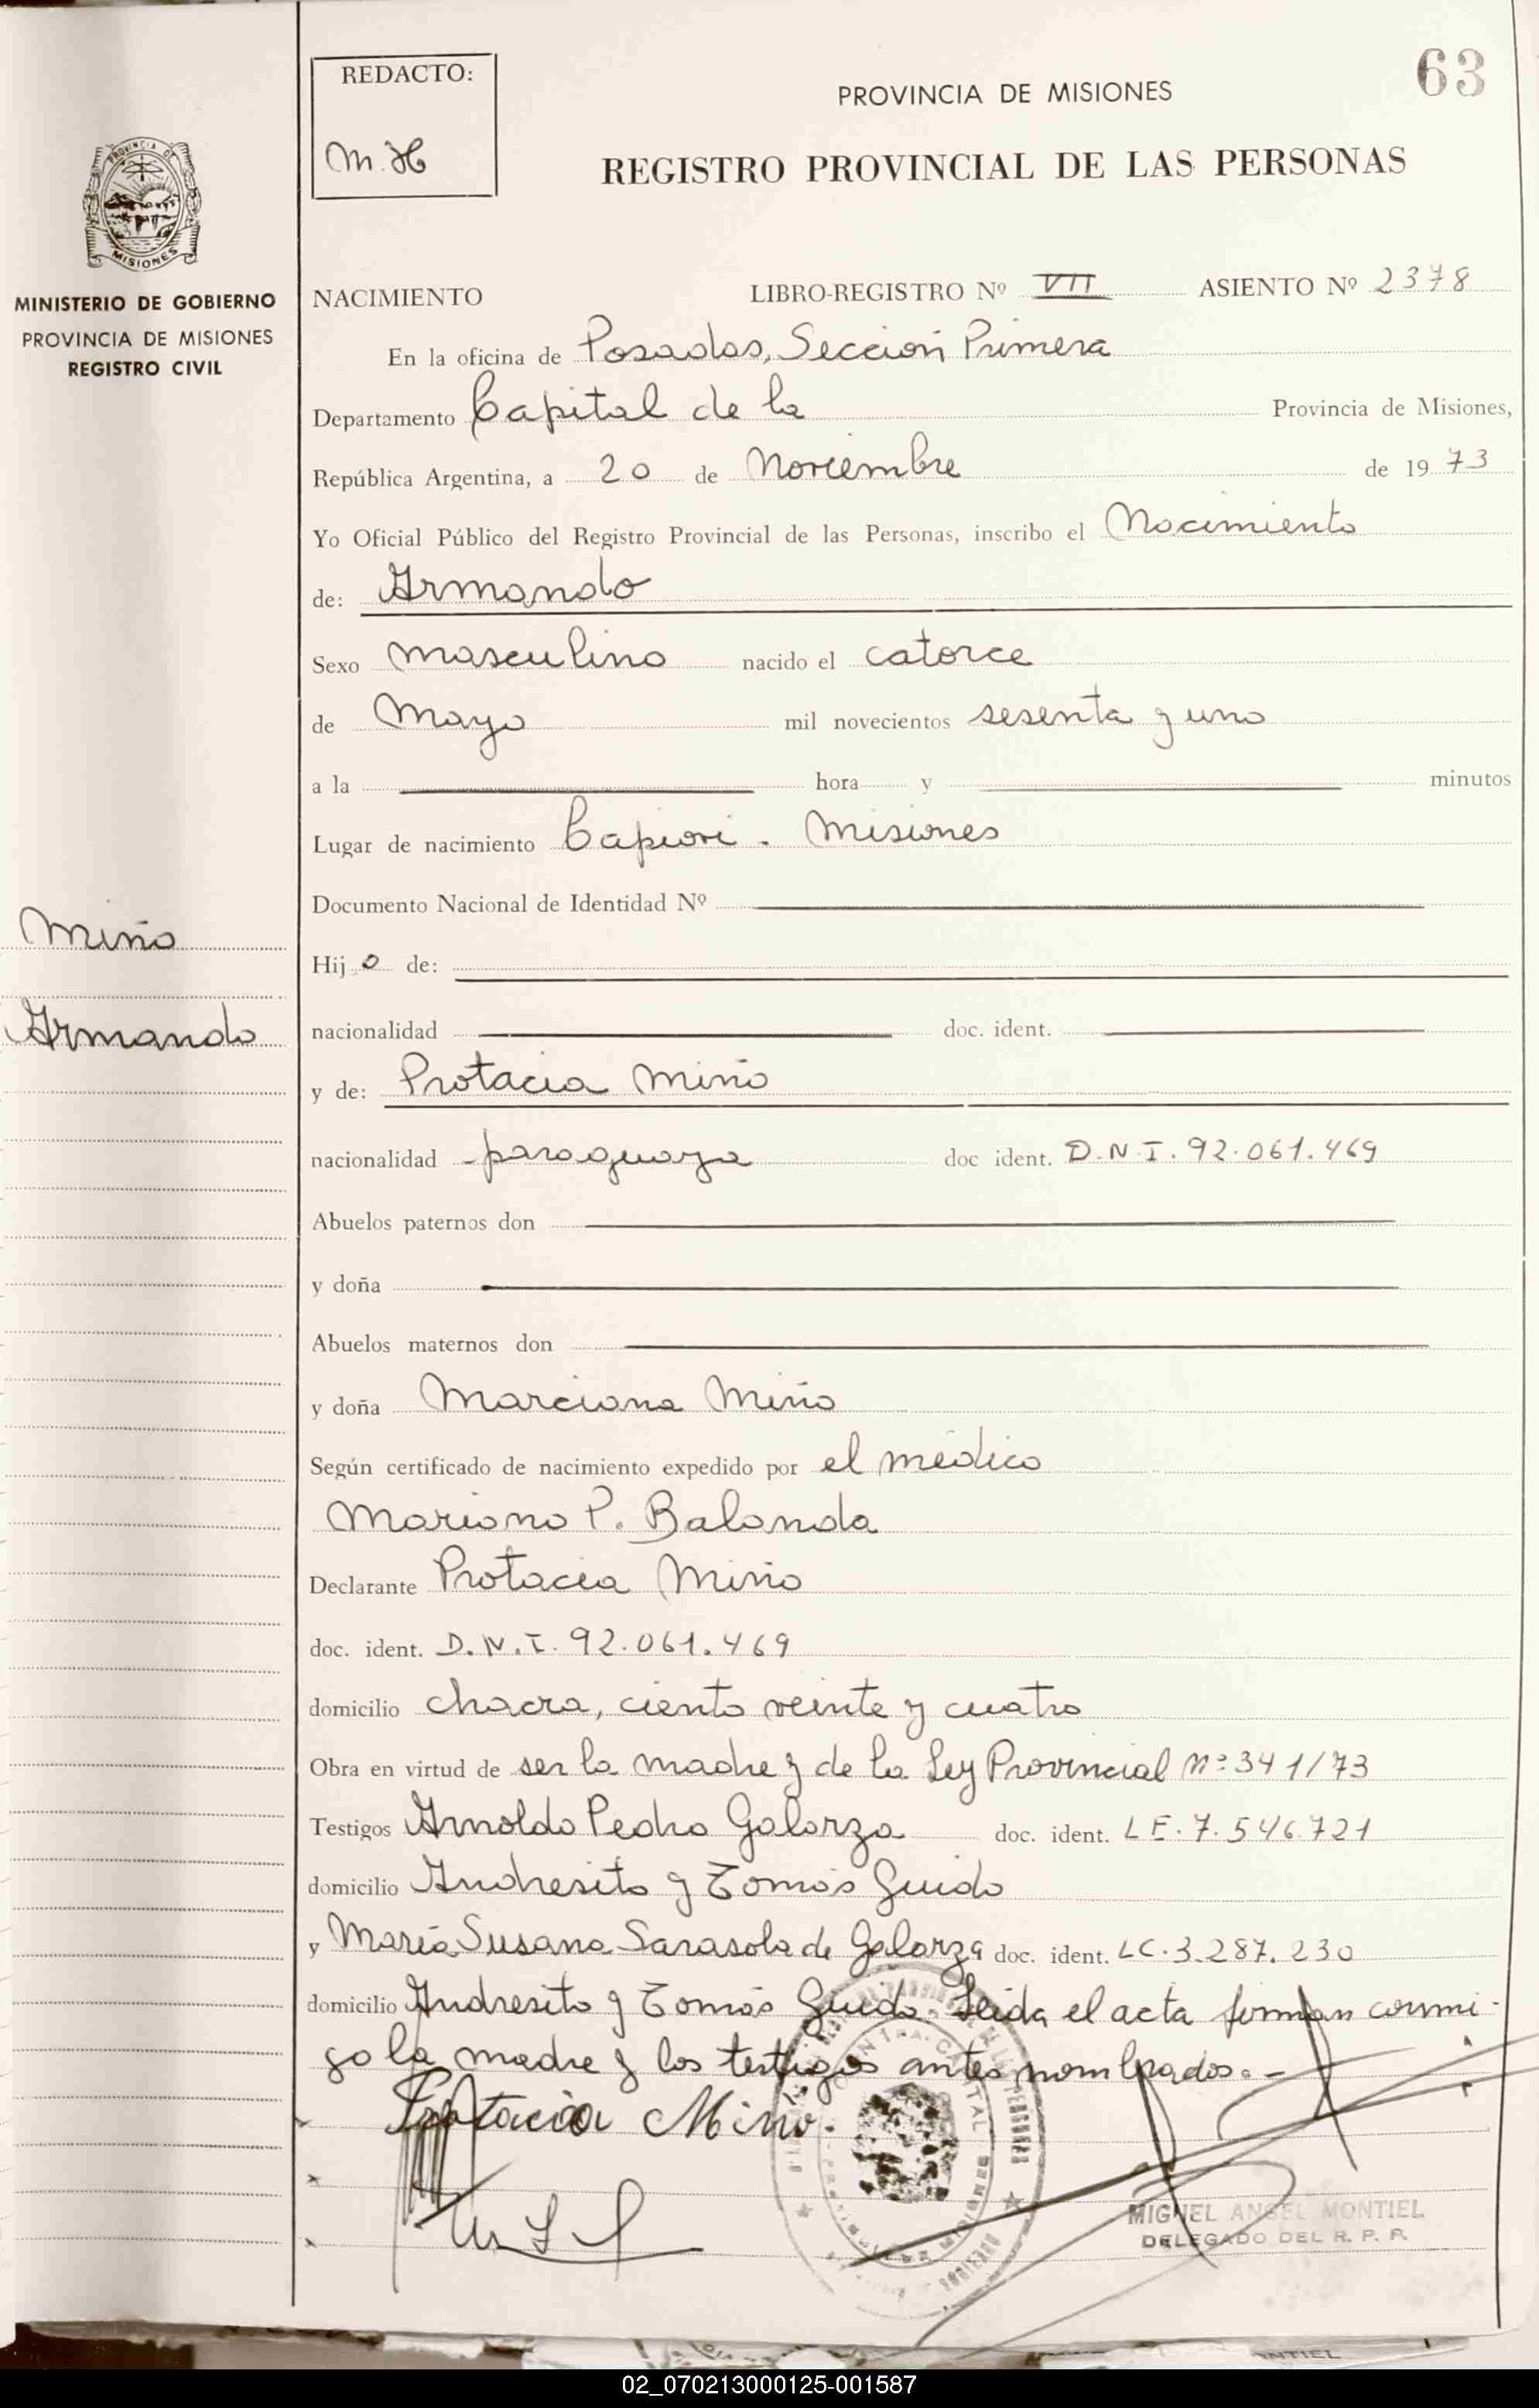 63
REDACTO:
M.H
PROVINCIA DE MISIONES
REGISTRO PROVINCIAL DE LAS PERSONAS
PROVINCIA DE
MISIONES
MINISTERIO DE GOBIERNO
PROVINCIA DE MISIONES
REGISTRO CIVIL
NACIMIENTO LIBRO-REGISTRO Nº VII ASIENTO Nº 2378
En la oficina de Posadas, Sección Primera
Departamento Capital de la Provincia de Misiones,
República Argentina, a 20 de Noviembre de 1973
Yo Oficial Público del Registro Provincial de las Personas, inscribo el Nacimiento
de: Armando
Sexo masculino nacido el catorce
de Mayo mil novecientos sesenta y uno
a la hora y minutos
Lugar de nacimiento Capiovi. Misiones
Documento Nacional de Identidad Nº
Miño
Hijo de:
Armando
nacionalidad doc. ident.
y de: Protacia Miño
nacionalidad paraguaya doc ident. D.N.I. 92.061.469
Abuelos paternos don
y doña
Abuelos maternos don
y doña Marciana Miño
Según certificado de nacimiento expedido por el médico
Mariano P. Balanda
Declarante Protacia Miño
doc. ident. D.N.I. 92.061.469
domicilio chacra, ciento veinte y cuatro
Obra en virtud de ser la madre y de la Ley Provincial Nº 341/73
Testigos Arnoldo Pedro Galarza doc. ident. LE. 7.546.721
domicilio Andresito y Tomás Guido
y María Susana Sarasola de Galarza doc. ident. LC. 3.287.230
domicilio Andresito y Tomás Guido. Leida el acta firman conmi-
go la madre y los testigos antes nombrados.-
Protacia Miño.
MIGUEL ANGEL MONTIEL
DELEGADO DEL R. P. P.
02_070213000125-001587